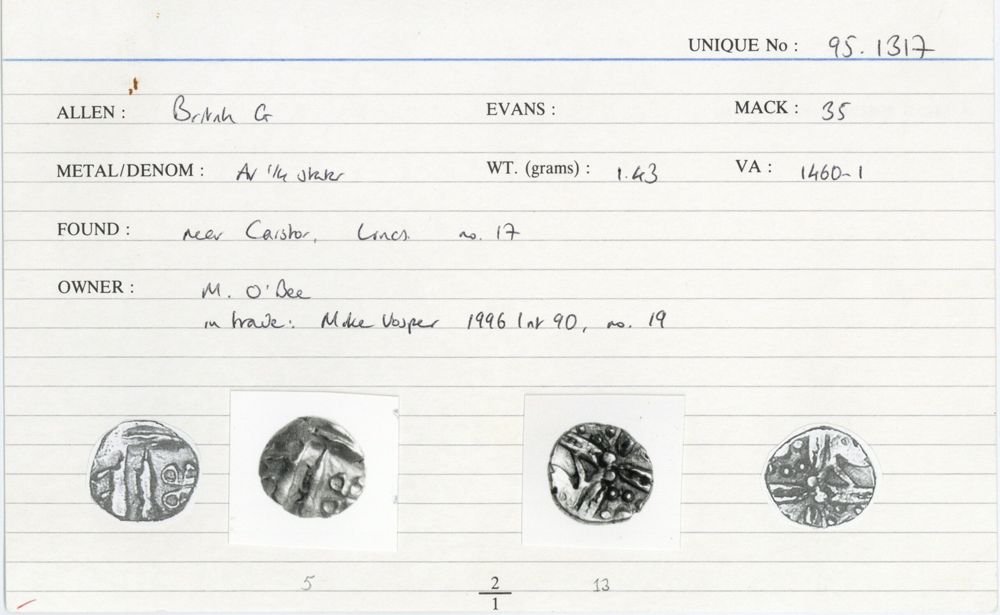 UNIQUE No : 95.1317
ALLEN : British G EVANS : MACK : 35
METAL/DENOM : AV 1/4 stater WT. (grams) : 1.43 VA : 1460-1
FOUND : near Caistor, Lincs. no. 17
OWNER : M. O'Bee
in trade: Mike Vosper 1996 list 90, no. 19
5 2/1 13